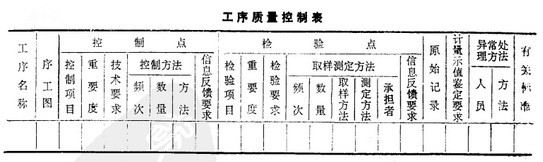 工序质量控制表
工序名称
工序图
控制点
控制项目
重要度
技术要求
控制方法
频次
数量
方法
信息反馈要求
检验点
检验项目
重要度
检验要求
取样测定方法
频次
数量
取样方法
测定方法
承担者
信息反馈要求
原始记录
计量示值鉴定要求
异常处理方法
人员
方法
有关标准